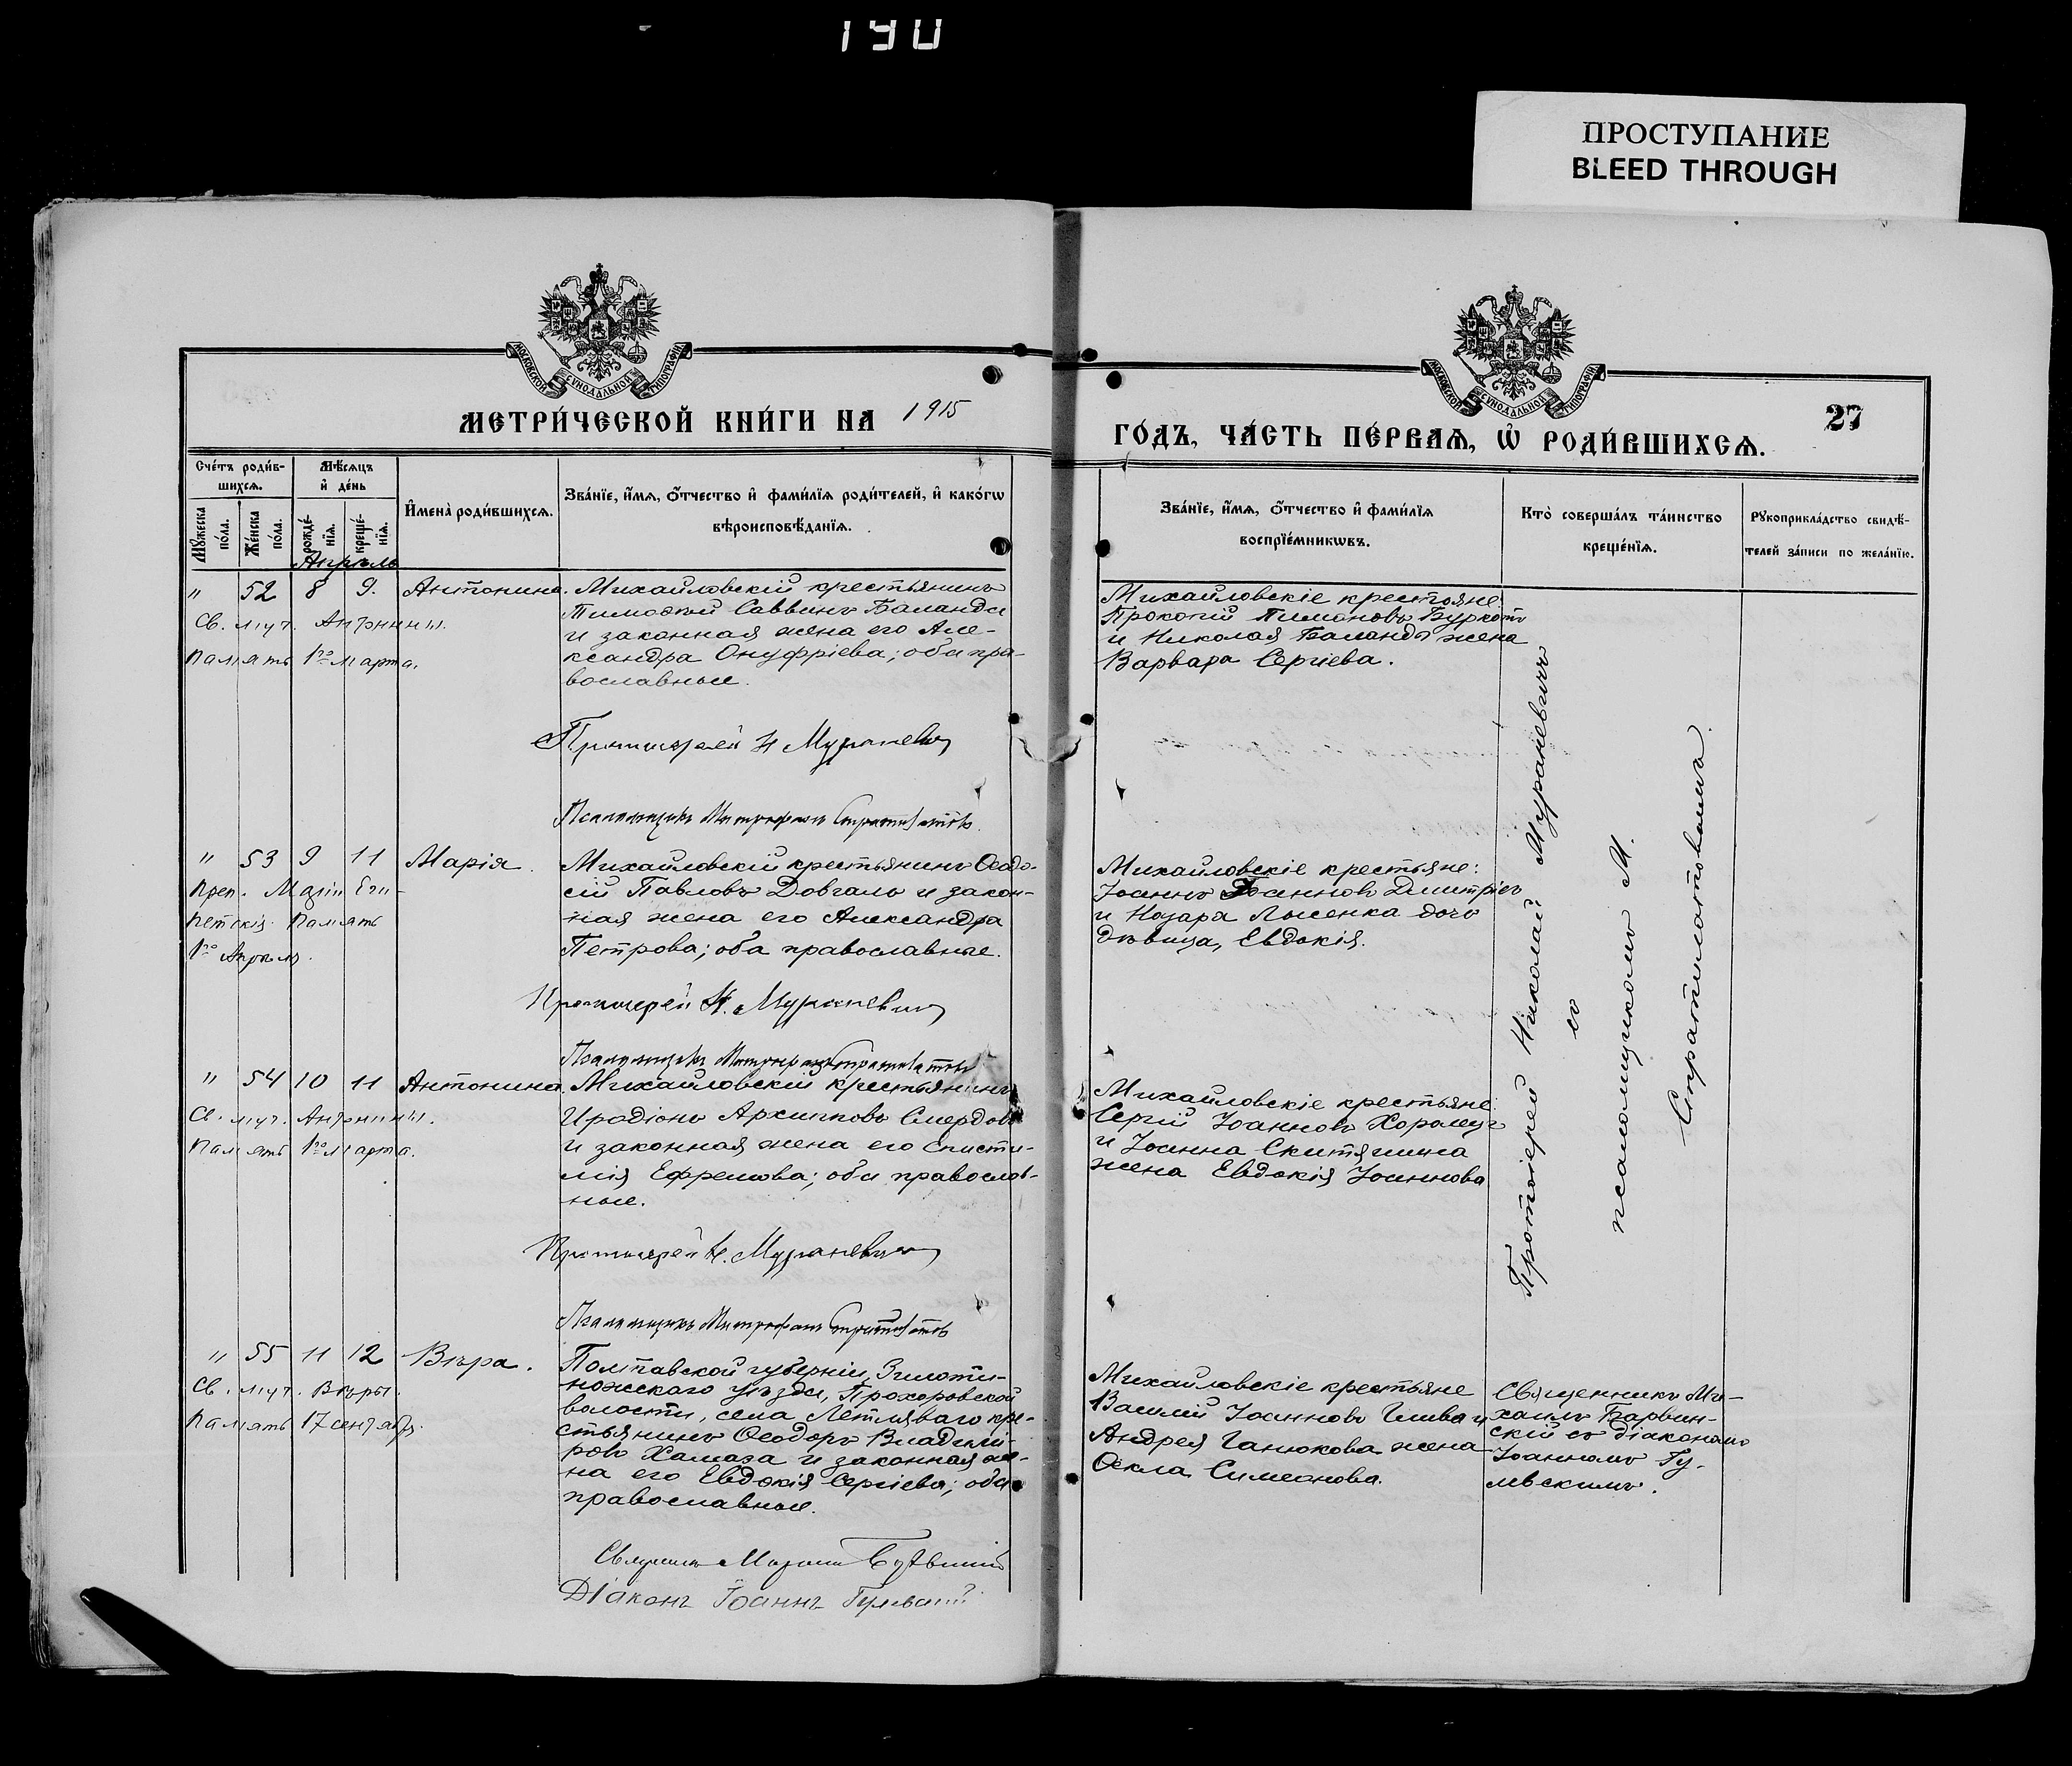 190
ПРОСТУПАНИЕ
BLEED THROUGH
МОСКОВСКОЙ СѴНОДАЛЬНОЙ ТИПОГРАФІИ
МОСКОВСКОЙ СѴНОДАЛЬНОЙ ТИПОГРАФІИ
МЕТРИ́ЧЕСКОЙ КНИ́ГИ НА 1915
ГО́ДЪ, ЧА́СТЬ ПЕ́РВАѦ, Ѡ҆ РОДИ́ВШИХСѦ.
27
Сче́тъ роди́в-
шихсѧ.
Мѣ́сѧцъ
и҆ де́нь
Мꙋ́жеска по́ла.
Же́нска по́ла.
рожде́-
нїѧ.
креще́-
нїѧ.
И҆мена̀ роди́вшихсѧ.
Зва́нїе, и҆́мѧ, ѻ҆́тчество и҆ фами́лїѧ роди́телей, и҆ како́гѡ
вѣроисповѣ́данїѧ.
Зва́нїе, и҆́мѧ, ѻ҆́тчество и҆ фами́лїѧ
воспрїе́мникѡвъ.
Кто̀ соверша́лъ та́инство
креще́нїѧ.
Рꙋкоприкла́дство свидѣ́-
телей за́писи по жела́нїю.
Апрѣль
" 52 8 9. Антонина.
Св. муч. Антонины.
Память 1го марта.
Михайловскій крестьянинъ
Тимоѳей Саввинъ Баланда
и законная жена его Але-
ксандра Онуфріева; оба пра-
вославные.
Протоіерей Н Мураневичъ
Псаломщикъ Митрофанъ Стратилатовъ
Михайловскіе крестьяне:
Прокопій Пимоновъ Буркотъ
и Николая Баланды жена
Варвара Сергіева.
Протоіерей Николай Мураневичъ
съ
псаломщикомъ М.
Стратилатовымъ.
" 53 9 11 Марія.
Преп. Маріи Еги-
петскія. Память
1го Апрѣля.
Михайловскій крестьянинъ Ѳеодо-
сій Павловъ Довгаль и закон-
ная жена его Александра
Петрова; оба православные.
Протоіерей Н. Мураневичъ
Псаломщикъ Митрофанъ Стратилатовъ
Михайловскіе крестьяне:
Іоаннъ Іоанновъ Дмитріевъ
и Назара Лысенка дочь
дѣвица, Евдокія.
" 54 10 11 Антонина.
Св. муч. Антонины.
Память 1го марта.
Михайловскій крестьянинъ
Иродіонъ Архиповъ Смердовъ
и законная жена его Еписти-
мія Ефремова; оба православ-
ные.
Протоіерей Н. Мураневичъ
Псаломщикъ Митрофанъ Стратилатовъ
Михайловскіе крестьяне:
Сергій Іоанновъ Хоромецъ
и Іоанна Скитяшина
жена Евдокія Іоаннова
" 55 11 12 Вѣра.
Св. муч. Вѣры.
Память 17 сентября.
Полтавской губерніи, Золото-
ножскаго уѣзда, Прохоровской
волости, села Лепляваго кре-
стьянинъ Ѳеодоръ Владимі-
ровъ Хамаза и законная же-
на его Евдокія Сергіева; оба
православные.
Священникъ
Діаконъ Іоаннъ Гулевскій
Михайловскіе крестьяне
Василій Іоанновъ Глива и
Андрея Ганюкова жена
Ѳекла Симеонова.
Священникъ Ми-
хаилъ Барвин-
скій съ діакономъ
Іоанномъ Гу-
левскимъ.